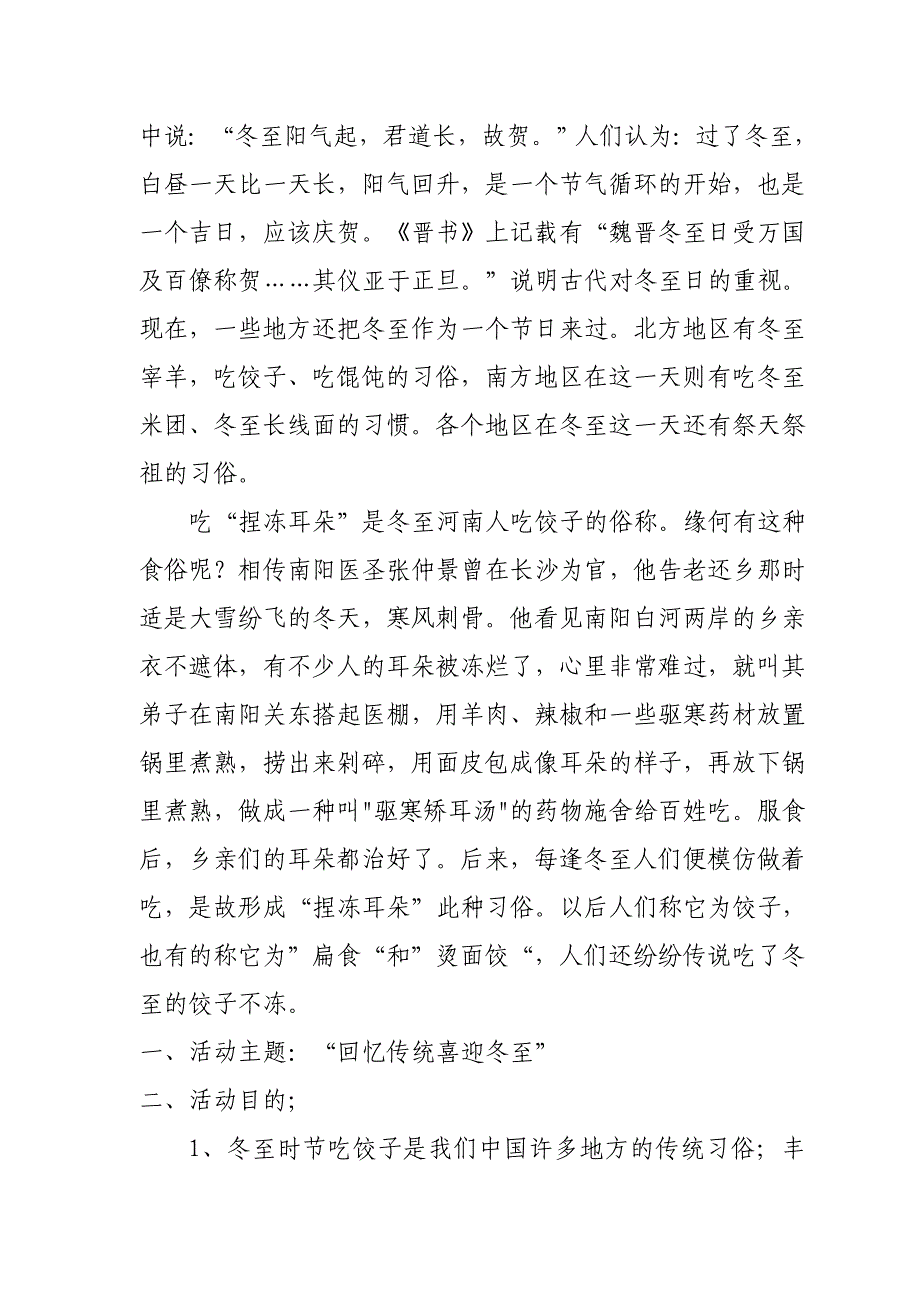 中说：“冬至阳气起，君道长，故贺。”人们认为：过了冬至，
白昼一天比一天长，阳气回升，是一个节气循环的开始，也是
一个吉日，应该庆贺。《晋书》上记载有“魏晋冬至日受万国
及百僚称贺……其仪亚于正旦。”说明古代对冬至日的重视。
现在，一些地方还把冬至作为一个节日来过。北方地区有冬至
宰羊，吃饺子、吃馄饨的习俗，南方地区在这一天则有吃冬至
米团、冬至长线面的习惯。各个地区在冬至这一天还有祭天祭
祖的习俗。
吃“捏冻耳朵”是冬至河南人吃饺子的俗称。缘何有这种
食俗呢？相传南阳医圣张仲景曾在长沙为官，他告老还乡那时
适是大雪纷飞的冬天，寒风刺骨。他看见南阳白河两岸的乡亲
衣不遮体，有不少人的耳朵被冻烂了，心里非常难过，就叫其
弟子在南阳关东搭起医棚，用羊肉、辣椒和一些驱寒药材放置
锅里煮熟，捞出来剁碎，用面皮包成像耳朵的样子，再放下锅
里煮熟，做成一种叫"驱寒矫耳汤"的药物施舍给百姓吃。服食
后，乡亲们的耳朵都治好了。后来，每逢冬至人们便模仿做着
吃，是故形成“捏冻耳朵”此种习俗。以后人们称它为饺子，
也有的称它为”扁食“和”烫面饺“，人们还纷纷传说吃了冬
至的饺子不冻。
一、活动主题：“回忆传统喜迎冬至”
二、活动目的；
1、冬至时节吃饺子是我们中国许多地方的传统习俗；丰